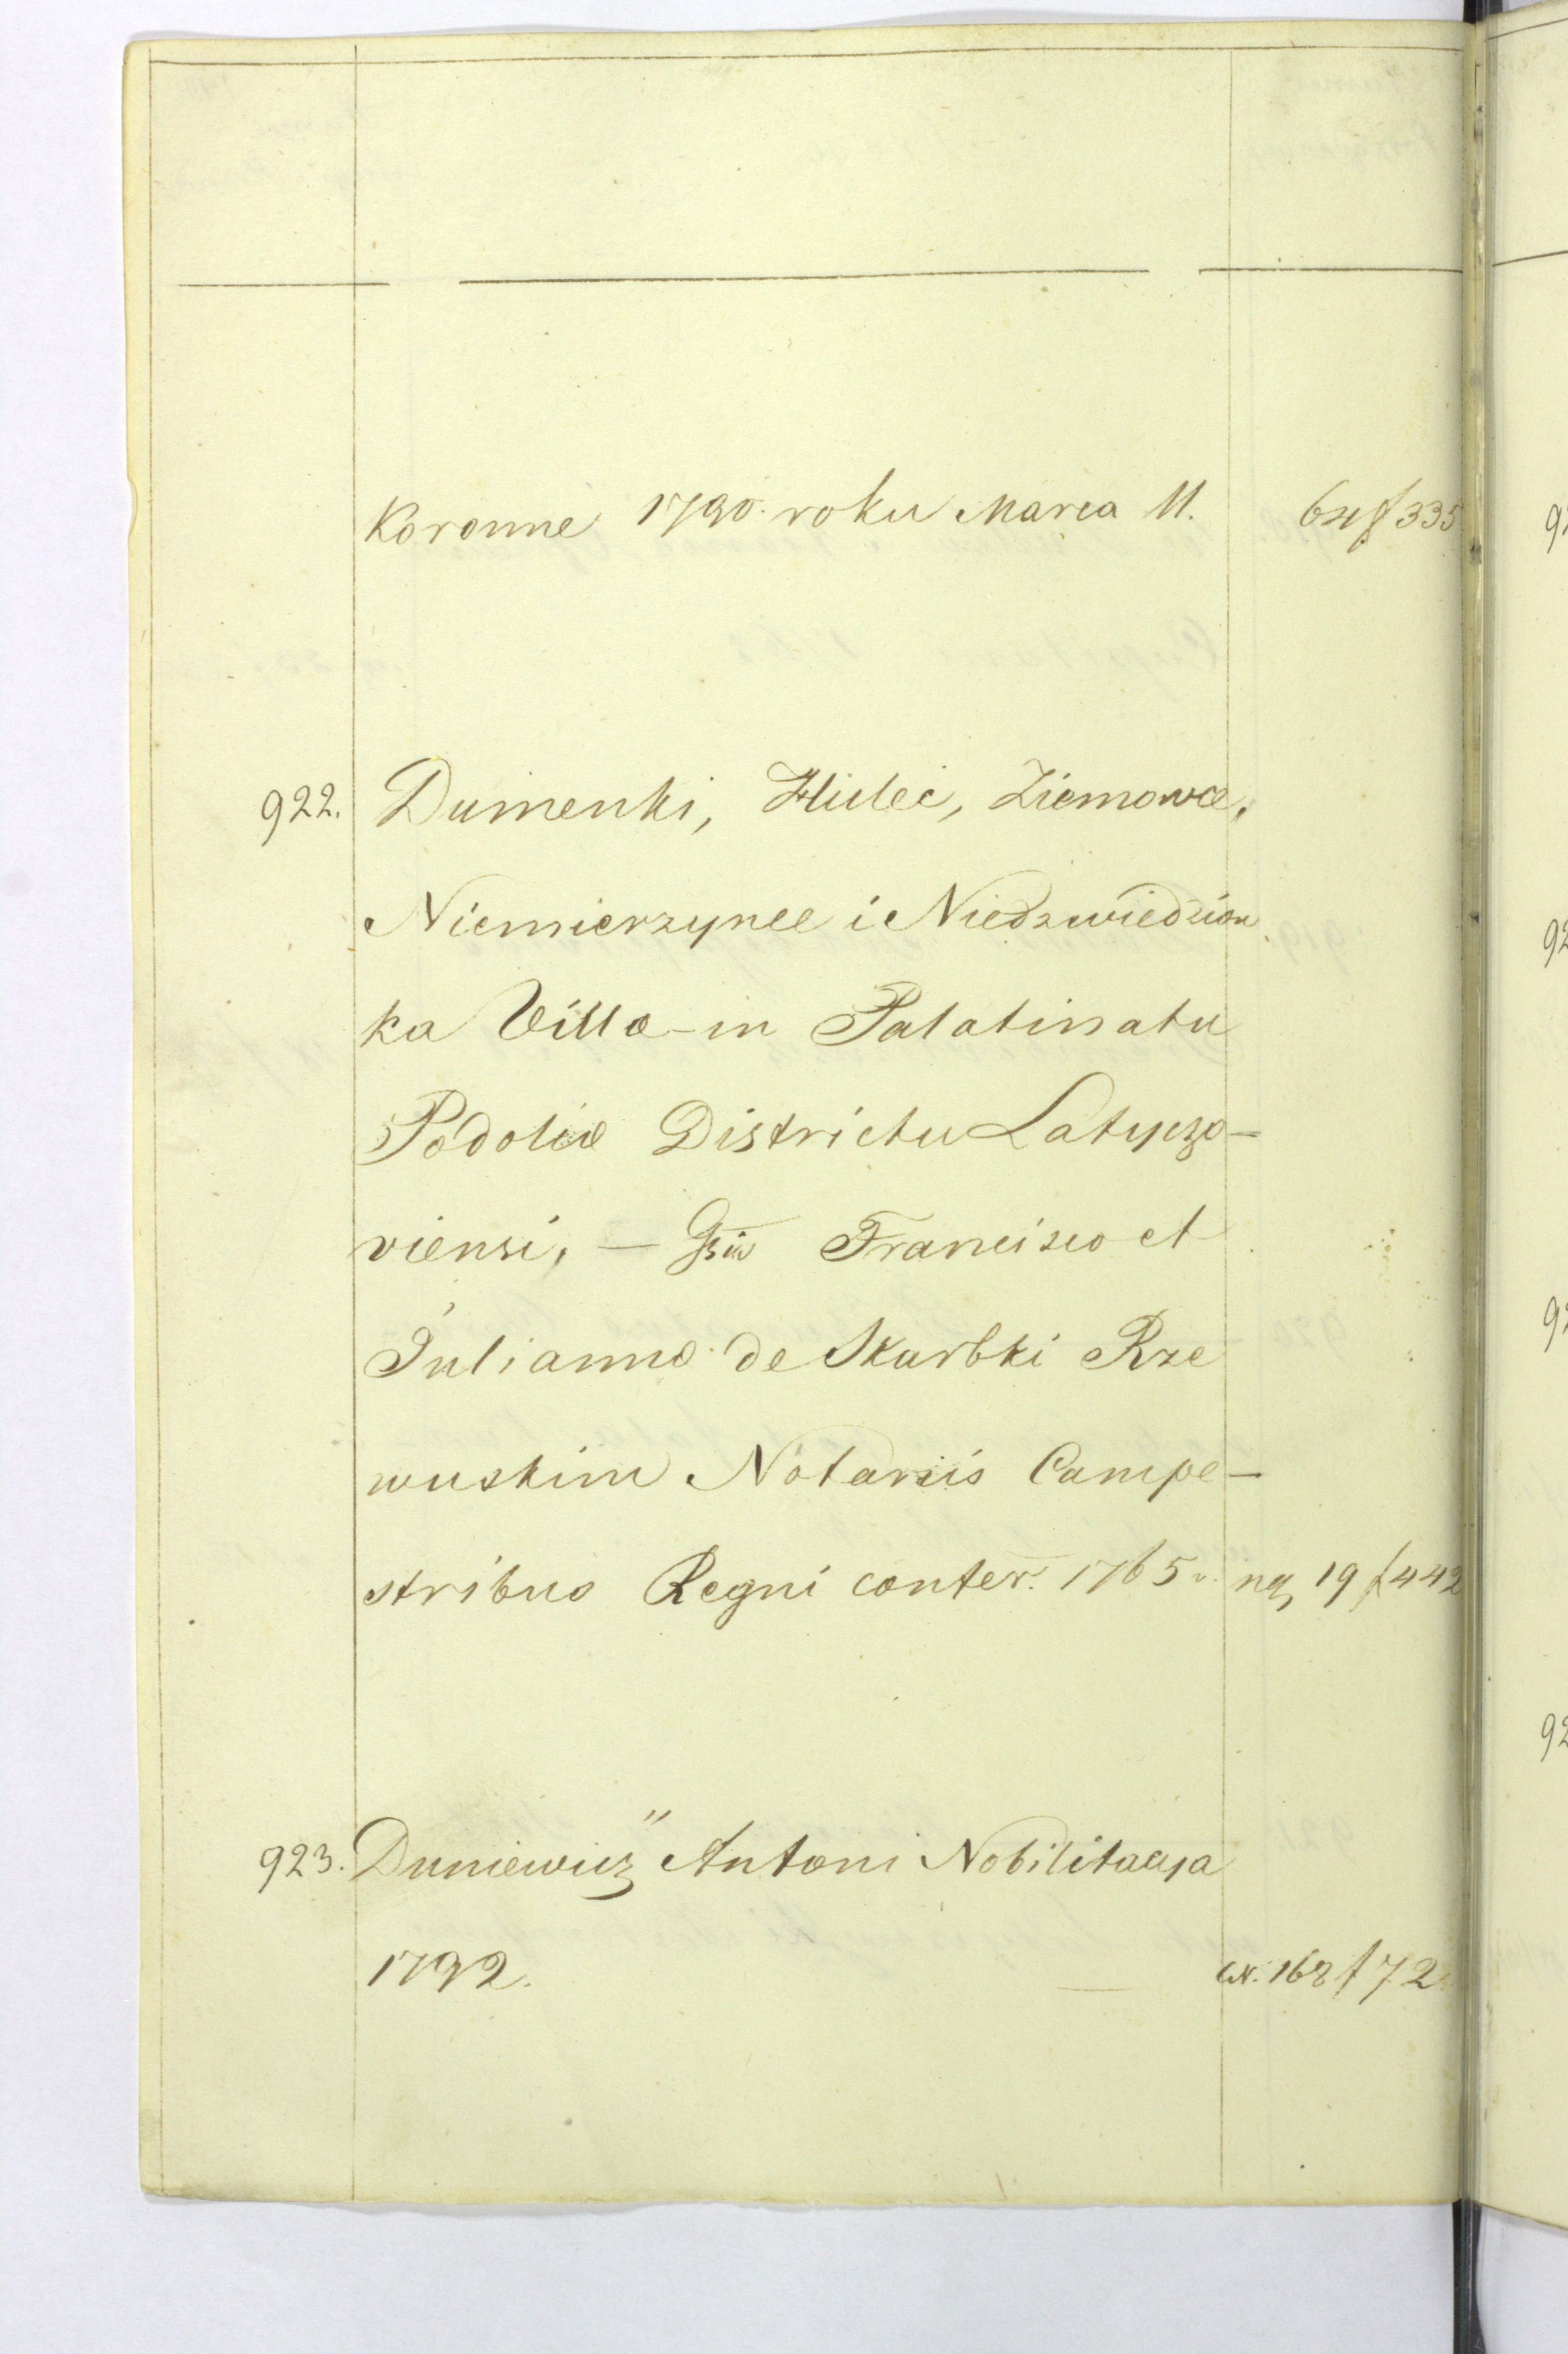 Koronne 1790. roku Marca 11. 64 f 335
922. Dumenki, Hulei, Ziemowce,
Niemierzynce i Niedzwiedzion
ka Villæ in Palatinatu
Podoliæ Districtu Latyczo-
viensi, — Francisco et
Juliannæ de Skarbki Rze
wuskim Notariis Campe-
stribus Regni confer. 1765 r. ng 19 f 442
923. Duniewicz" Antoni Nobilitacya
1792. — N. 162 f 72